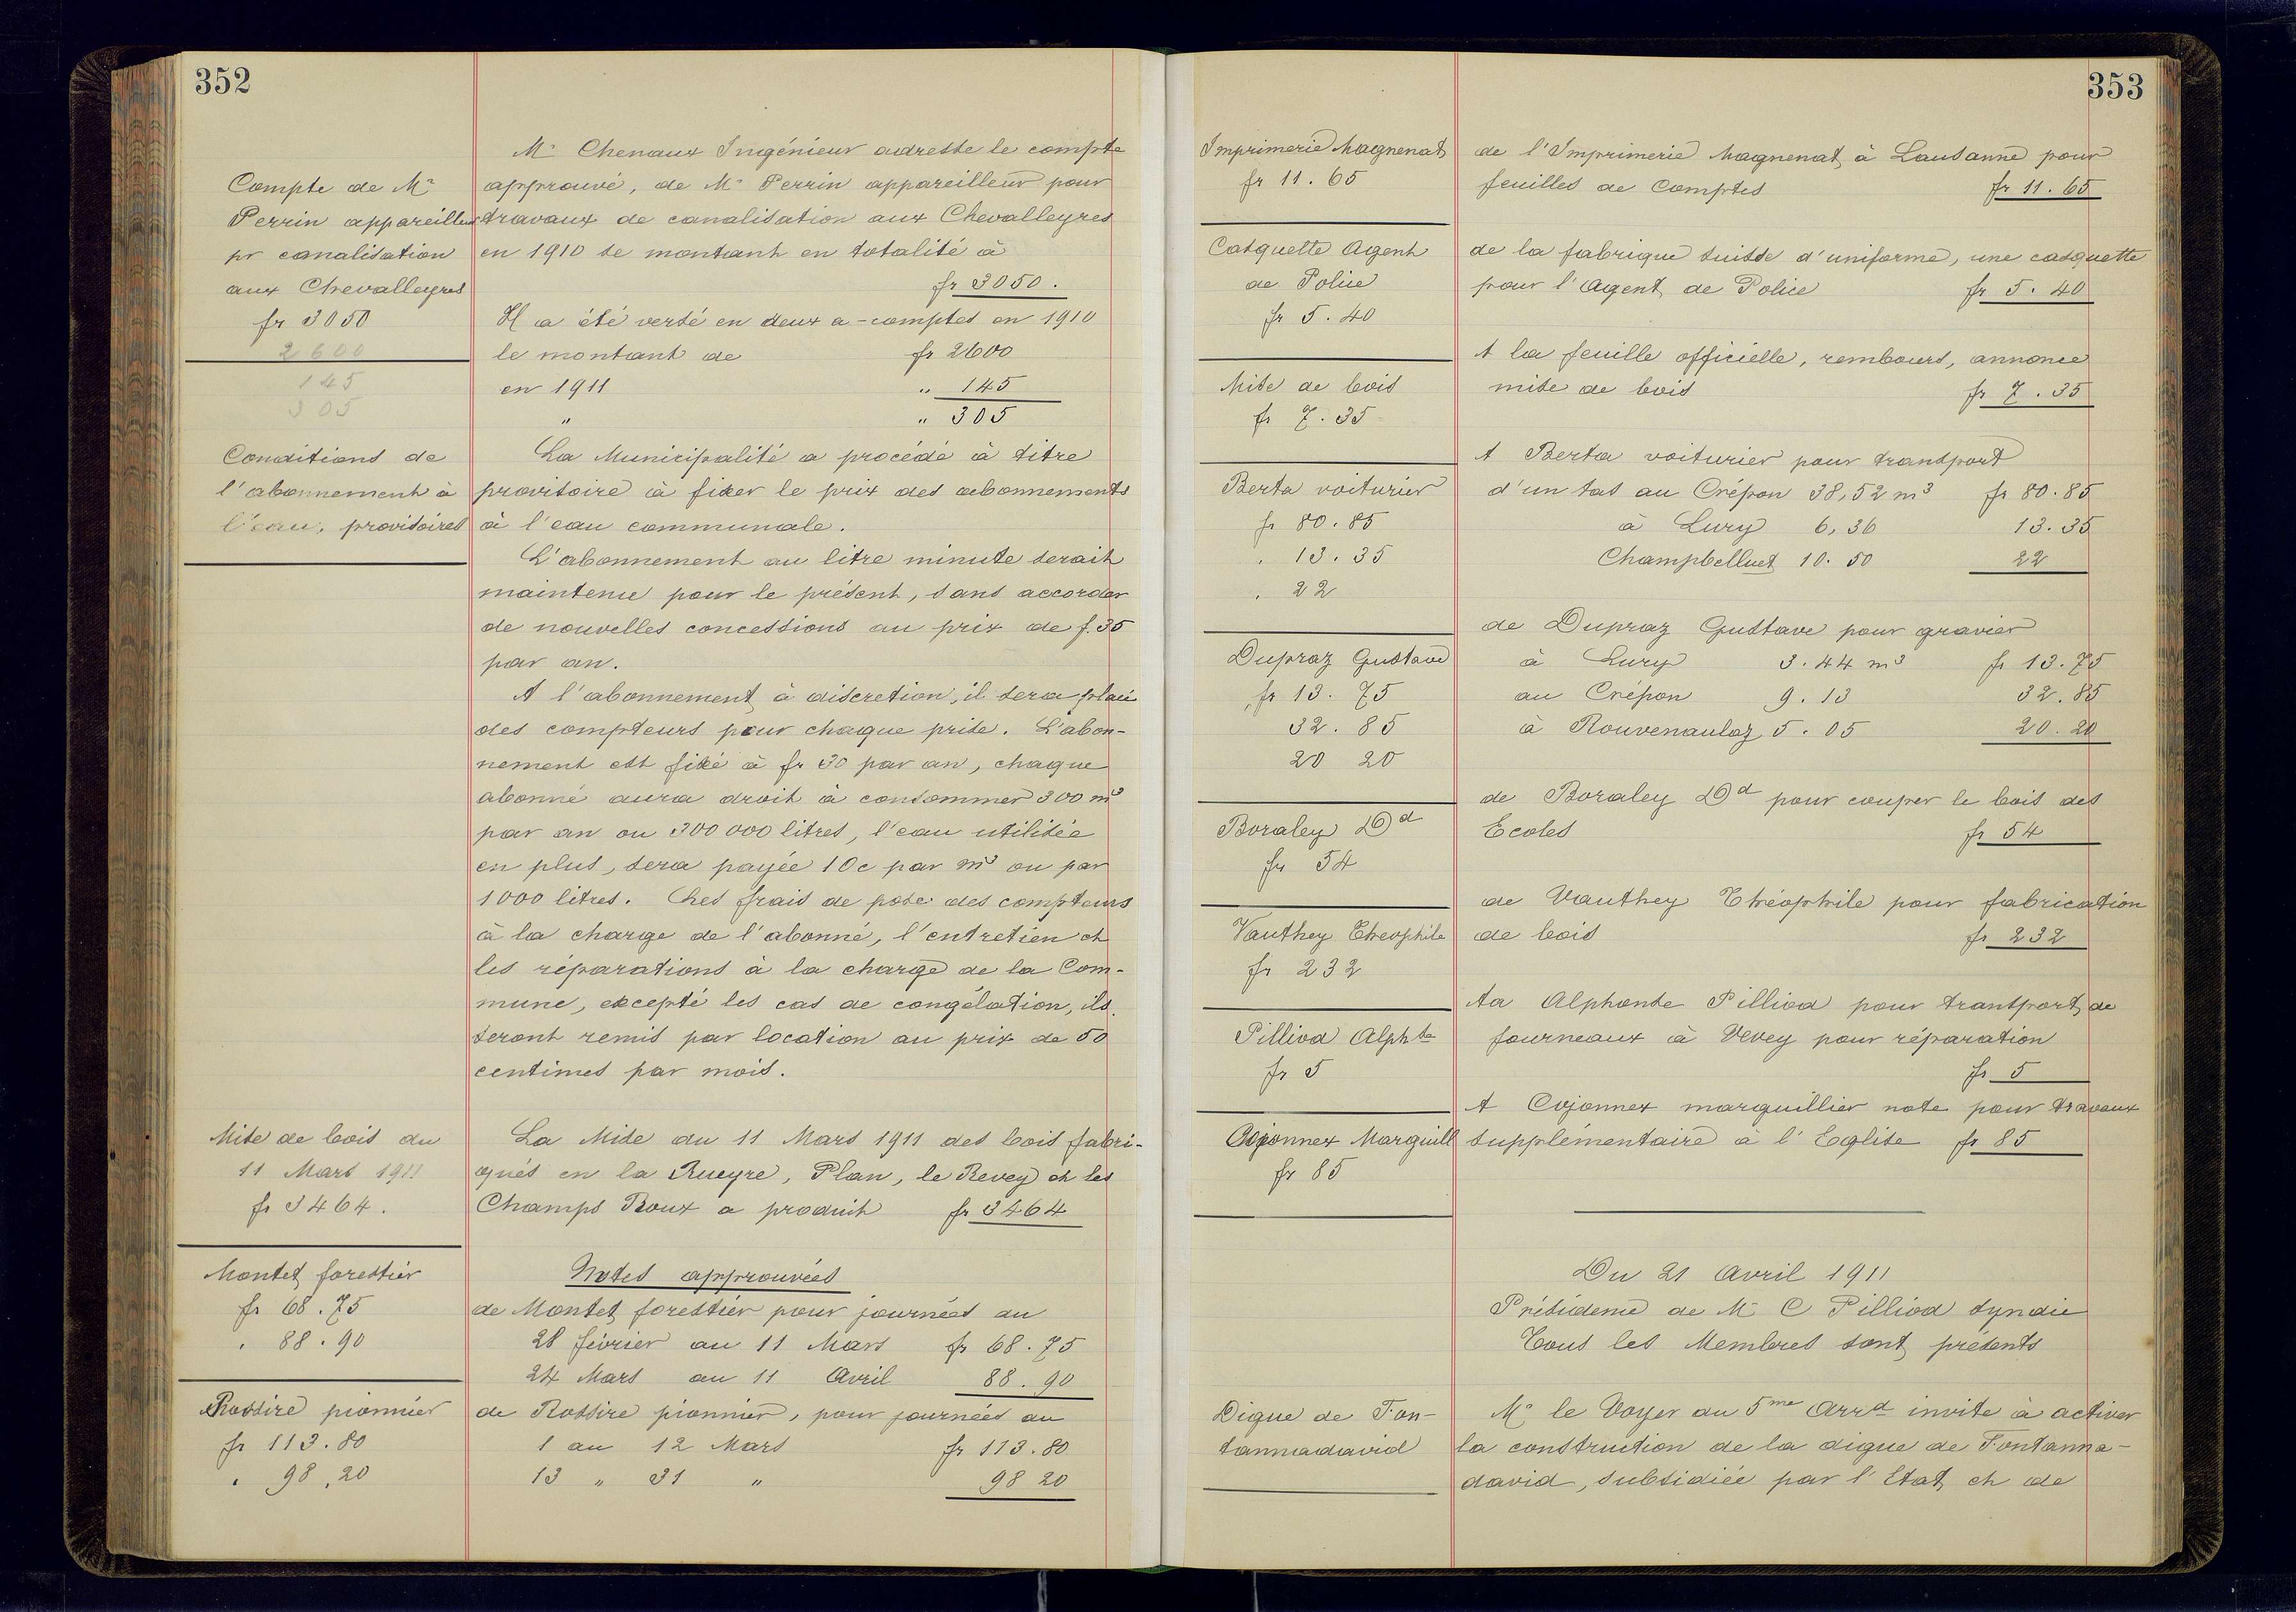 352
Mr Chenaux Ingénieur adresse le compte
Compte de Mr
approuvé, de Mr Perrin appareilleur pour
Perrin appareilleur
travaux de canalisation aux Chevalleyres
pr canalisation
en 1910 se montant en totalité à
aux Chevalleyres
fr 3050.
fr 3050
Il a été versé en deux a-comptes en 1910
2600
le montant de fr 2600
145
en 1911 " 145
305
" " 305
Conditions de
La Municipalité a procédé à titre
l'abonnement à
provisoire à fixer le prix des abonnements
l'eau, provisoires
à l'eau communale.
L'abonnement au litre minute serait
maintenu pour le présent, sans accorder
de nouvelles concessions au prix de f. 35
par an.
A l'abonnement à discretion, il sera placé
des compteurs pour chaque prise. L'abon-
nement est fixé à fr 30 par an, chaque
abonné aura droit à consommer 300 m3
par an ou 300 000 litres, l'eau utilisée
en plus, sera payée 10c par m3 ou par
1000 litres. Les frais de pose des compteurs
à la charge de l'abonné, l'entretien et
les réparations à la charge de la Com-
mune, excepté les cas de congélation, ils
seront remis par location au prix de 50
centimes par mois.
Mise de bois du
La Mise du 11 Mars 1911 des bois fabri-
11 Mars 1911
qués en la Rueyre, Plan, le Revey et les
fr 3464.
Champs Roux a produit fr 3464
Montet forestier
Notes approuvées
fr 68.75
de Montet forestier pour journées au
" 88.90
28 février au 11 Mars fr 68.75
24 Mars au 11 Avril 88.90
Rossire pionnier
de Rossire pionnier, pour journées au
fr 113.80
1 au 12 Mars fr 113.80
" 98.20
13 " 31 " 98 20
353
Imprimerie Magnenat
de l'Imprimerie Magnenat à Lausanne pour
fr 11.65
feuilles de Comptes fr 11.65
Casquette Agent
de la fabrique suisse d'uniforme, une casquette
de Police
pour l'Agent de Police fr 5.40
fr 5.40
A la feuille officielle, rembours, annonce
Mise de bois
mise de bois fr 7.35
fr 7.35
A Berta voiturier pour transport
Berta voiturier
d'un tas au Crépon 38,52 m3 fr 80.85
fr 80.85
à Lury 6,36 13.35
" 13.35
Champbelluet 10.50 22
" 22
de Dupraz Gustave pour gravier
Dupraz Gustave
à Lury 3.44 m3 fr 13.75
fr 13.75
au Crépon 9.13 32.85
32.85
à Rouvenaulaz 5.05 20.20
20 20
de Boraley Dd pour couper le bois des
Boraley Dd
Ecoles fr 54
fr 54
de Vauthey Théophile pour fabrication
Vauthey Theophile
de bois fr 232
fr 232
A Alphonse Pilliod pour transport de
Pilliod Alphse
fourneaux à Vevey pour réparation
fr 5
fr 5
A Cojonnex marguillier note pour travaux
Cojonnex Marguill
supplémentaire à l'Eglise fr 85
fr 85
Du 21 Avril 1911
Présidence de Mr C Pilliod syndic
Tous les Membres sont présents
Digue de Fon-
Mr le Voyer du 5me Arrd invite à activer
tannadavid
la construction de la digue de Fontanna-
david, subsidiée par l'Etat et de